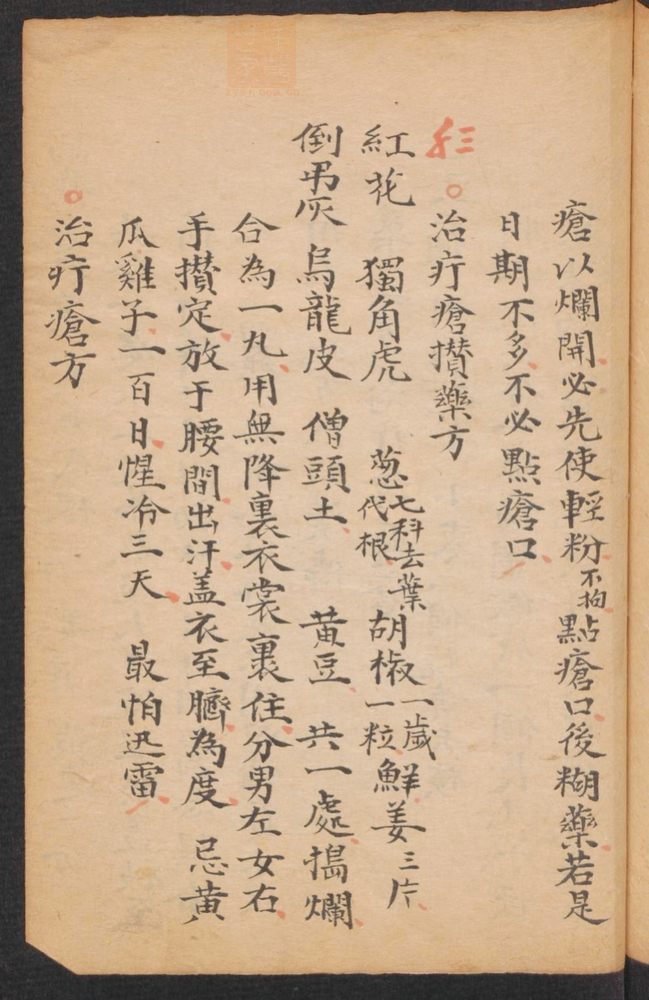 瘡以爛開必先使輕粉不拘點瘡口後糊藥若是
日期不多不必點瘡口
三
治疔瘡攢藥方
紅花 獨角虎 葱七科去葉代根 胡椒一歲一粒 鮮姜三片
倒吊灰 烏龍皮 僧頭土 黃豆 共一處搗爛
合為一丸用無降裏衣裳裹住分男左女右
手攢定放于腰間出汗盖衣至臍為度 忌黃
瓜雞子一百日惺冷三天 最怕迅雷
治疔瘡方